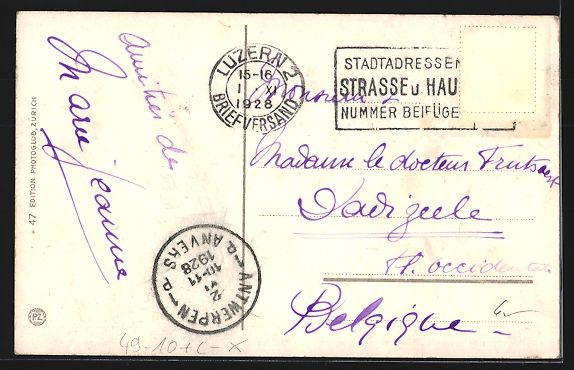 + 47 EDITION PHOTOGLOB, ZÜRICH
Amitiés de
Marie Jeanne
LUZERN 2
15-16
1 XI
1928
BRIEFVERSAND
STADTADRESSEN
STRASSE u. HAU
NUMMER BEIFÜGE
Monsieur &
Madame le docteur
Belgique
ANTWERPEN P
2 XI
10-11
1928
P. ANVERS
PZ
49-10+C-X